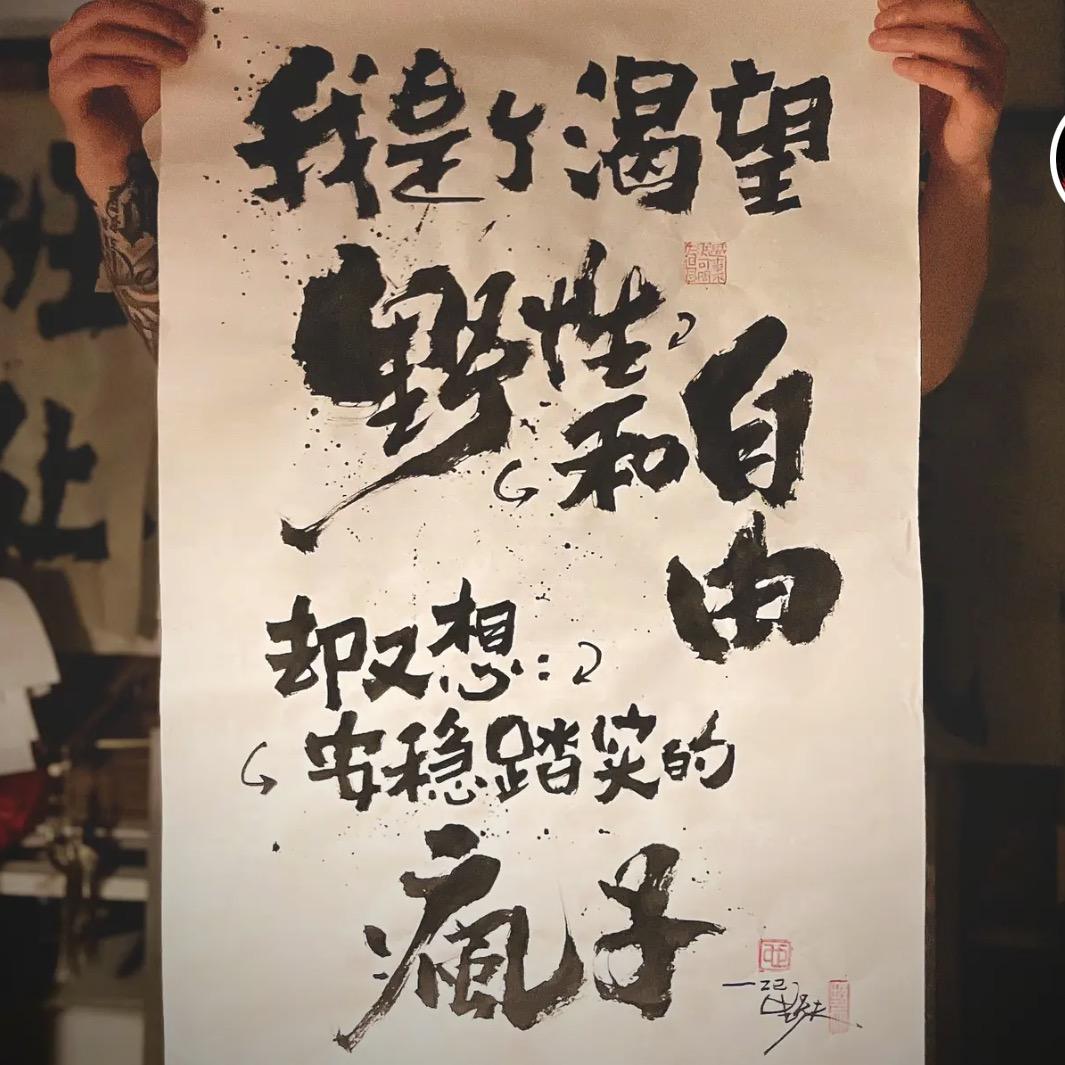 我是个渴望
野性
和自由
却又想:
安稳踏实的
瘋子